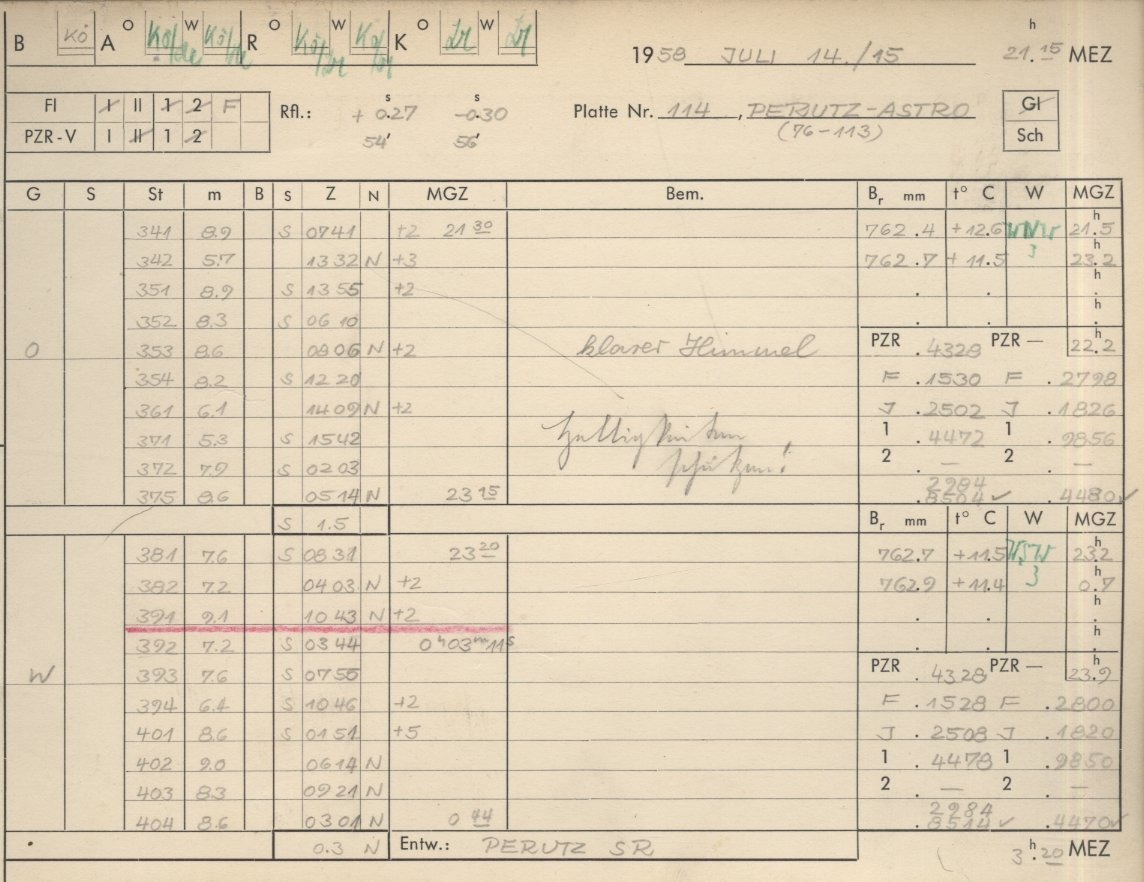 B Kö A O W R O W K O W
1958 JULI 14./15 21h.15 MEZ
FI I II 1 2 F
PZR-V I II 1 2
Rfl.: +0s.27 -0s.30
54' 56'
Platte Nr. 114, PERUTZ-ASTRO
(76-113)
Gl
Sch
G S St m B S Z N MGZ Bem. Br mm t° C W MGZ
341 8.9 S 0741 +2 21 30 762.4 +12.6 WNW 3 21h.5
342 5.7 1332 N +3 762.7 +11.5 23h.2
351 8.9 S 1355 +2 . . h.
352 8.3 S 0610 . . h.
O 353 8.6 0806 N +2 klarer Himmel PZR .4328 PZR — 22.2
354 8.2 S 1220 F .1530 F .2798
361 6.1 1409 N +2 J .2502 J .1826
371 5.3 S 1542 Helligkeiten 1 .4472 1 .9856
372 7.9 S 0203 schätzen! 2 — 2 —
2984
375 8.6 0514 N 23 15 .8504 ✓ .4480 ✓
S 1.5 Br mm t° C W MGZ
381 7.6 S 0831 23 20 762.7 +11.5 WSW 3 23h.2
382 7.2 0403 N +2 762.9 +11.4 0h.7
391 9.1 1043 N +2 . . h.
392 7.2 S 0344 0h03m11s . . h.
W 393 7.6 S 0755 PZR .4328 PZR — 23h.9
394 6.4 S 1046 +2 F .1528 F .2800
401 8.6 S 0151 +5 J .2508 J .1820
402 9.0 0614 N 1 .4478 1 .9850
403 8.3 0921 N 2 — 2 —
2984
404 8.6 0301 N 0 44 .8514 ✓ .4470 ✓
0.3 N Entw.: PERUTZ SR 3h.20 MEZ